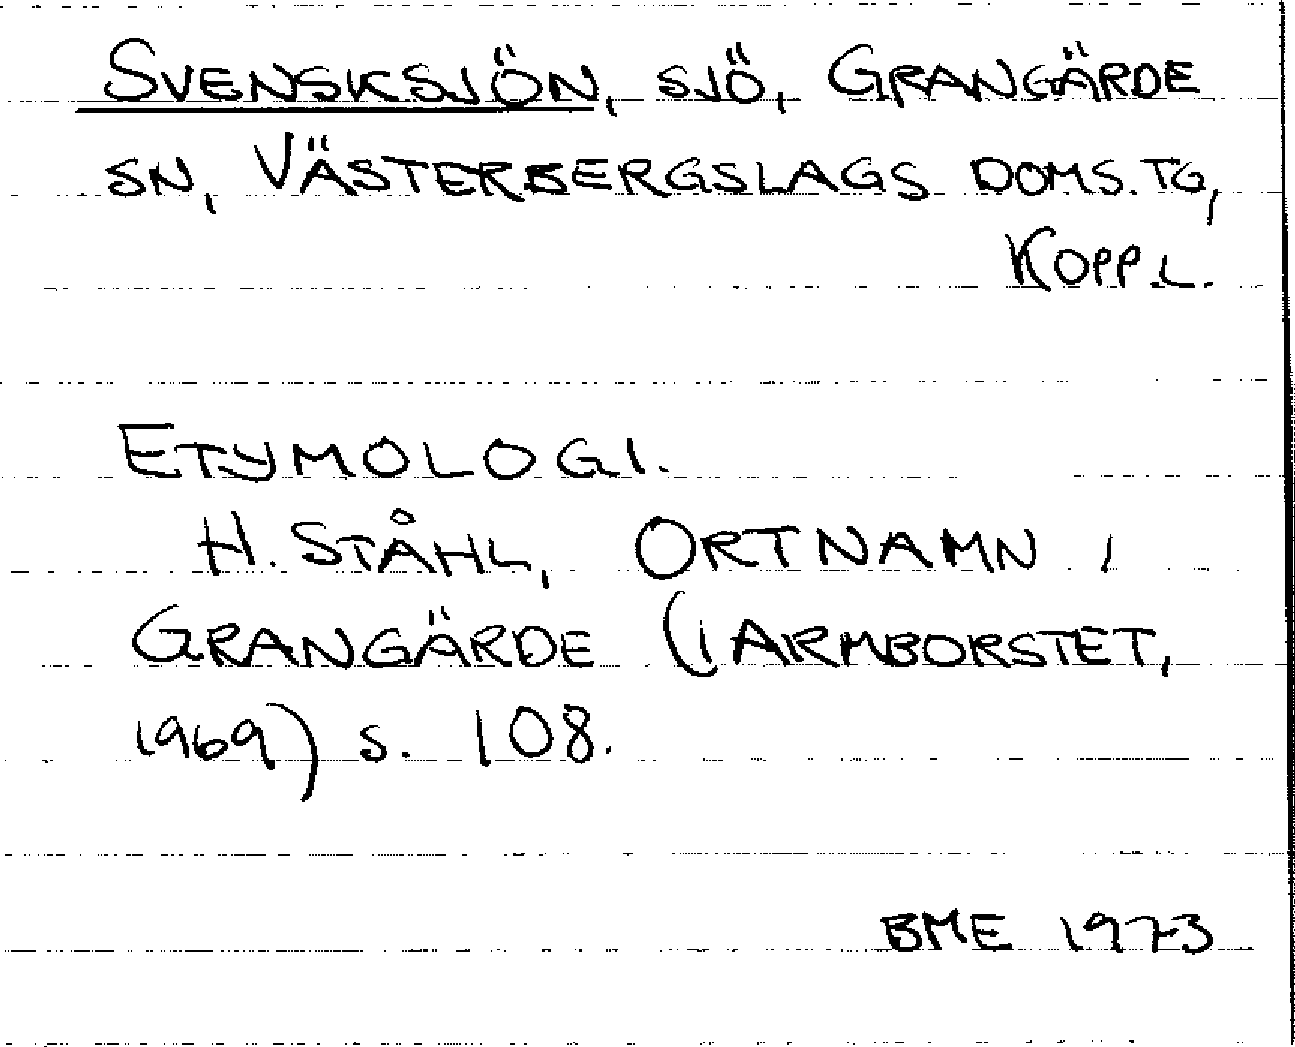 SVENSKSJÖN, SJÖ, GRANGÄRDE
SN, VÄSTERBERGSLAGS DOMS.TG,
KOPP.L.
ETYMOLOGI.
H. STÅHL, ORTNAMN I
GRANGÄRDE (I ARMBORSTET,
1969) S. 108.
BME 1973